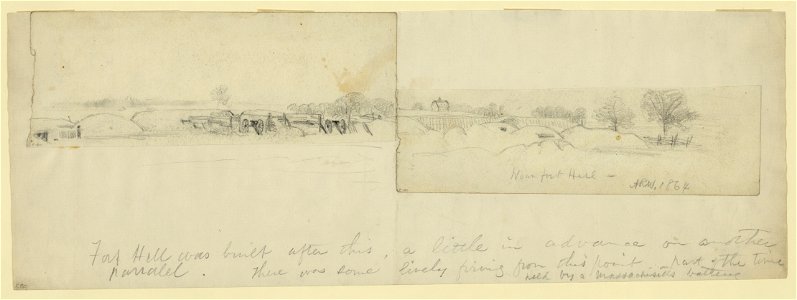 Near fort Hell —
ARW. 1864
Fort Hell was built after this, a little in advance on another
parralel. there was some lively firing from this point — part of the time
held by a Massachusetts battery